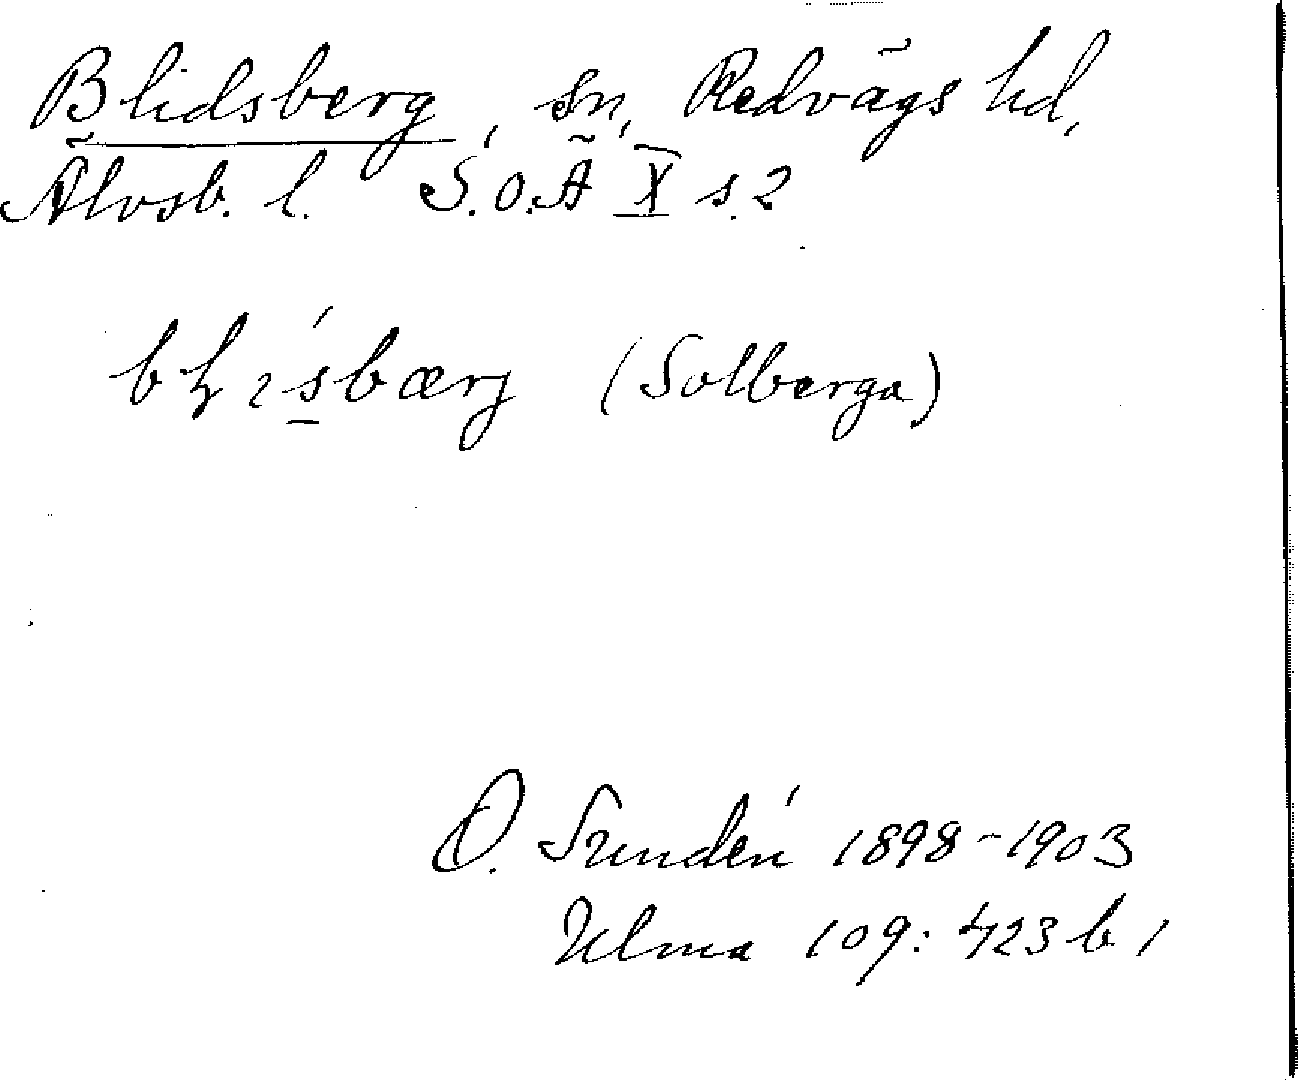 Blidsberg, sn, Redvägs hd,
Älvsb. l. S.O.Ä X s. 2
(Solberga)
O. Sundén 1898-1903
Ulma 109: 423 b 1